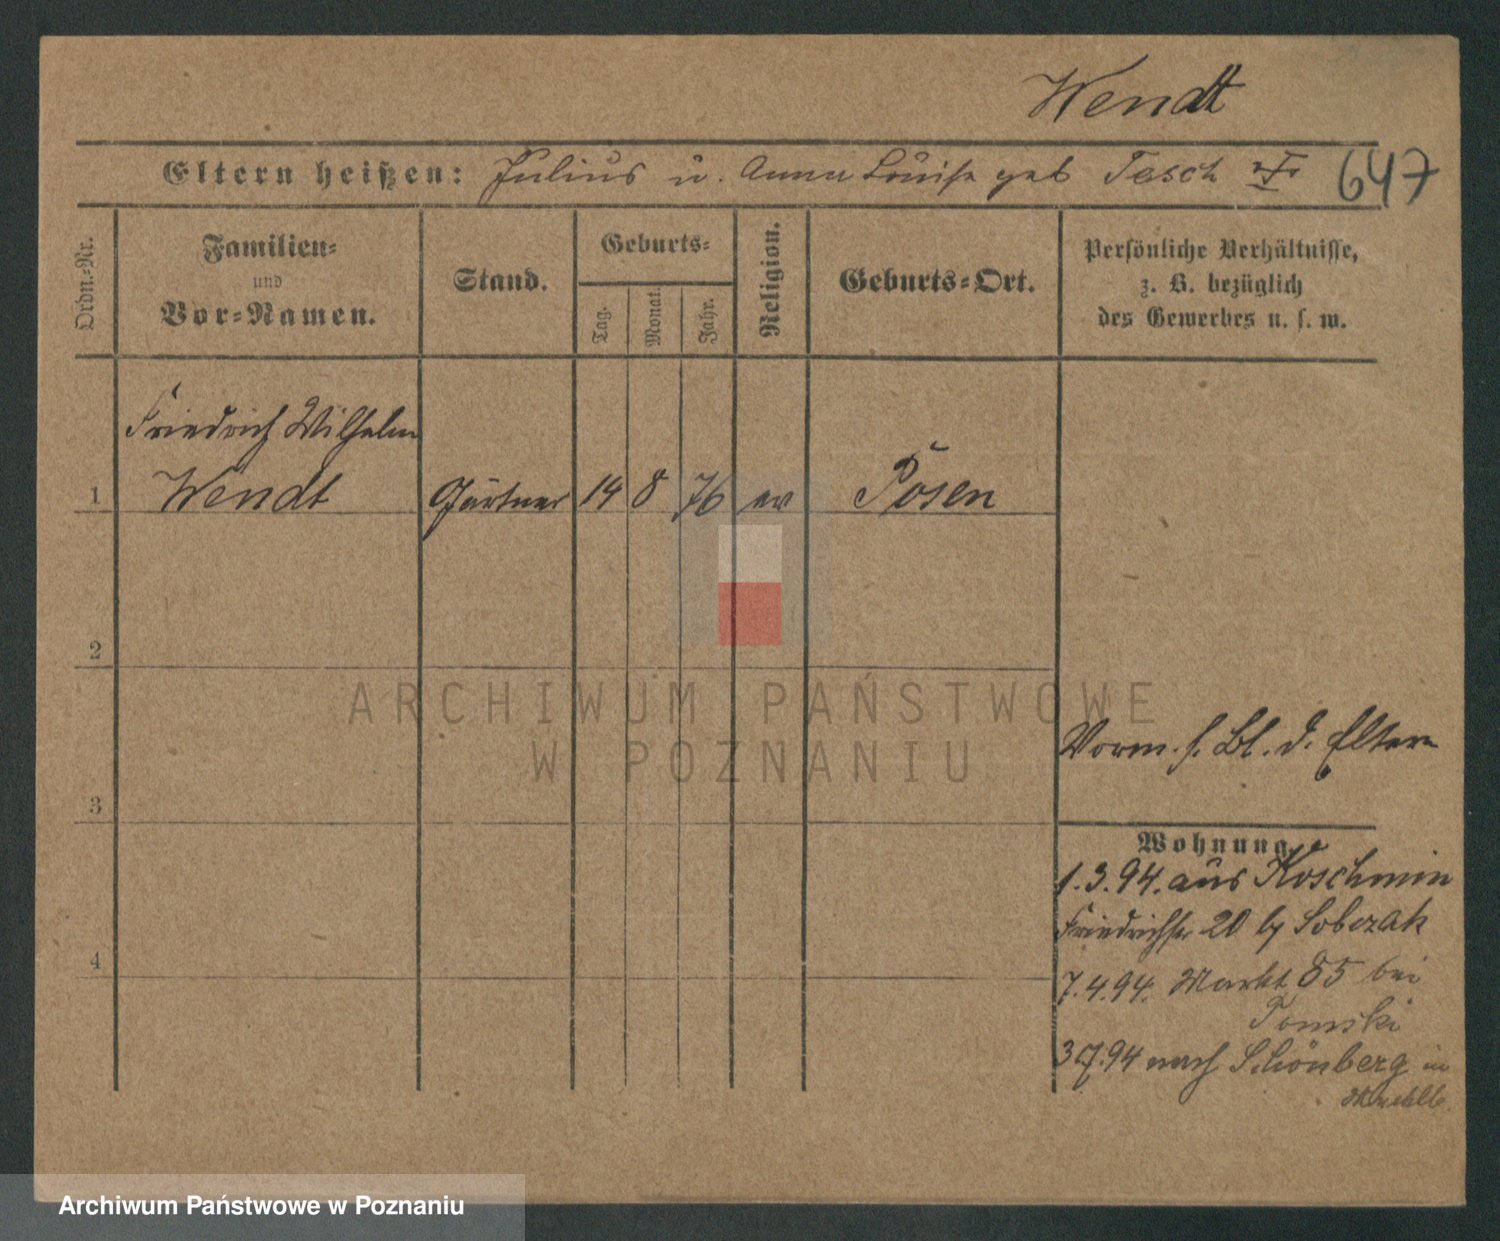 Wendt
Eltern heißen: Julius u. Anna Louise geb Tesch
647
Ordn.-Nr.
Familien-
und
Vor-Namen.
Stand.
Geburts-
Tag.
Monat.
Jahr.
Religion.
Geburts-Ort.
Persönliche Verhältnisse,
z. B. bezüglich
des Gewerbes u. s. w.
Friedrich Wilhelm
1 Wendt Gärtner 14 8 76 ev Posen
2
ARCHIWUM PAŃSTWOWE
W POZNANIU
Vorm. s. Bl. d. Eltern
3
Wohnung.
1.3.94. aus Koschmin
Friedrichstr 20 b/ Sobczak
4
7.4.94. Markt 85 bei
Tomski
3.7.94 nach Schönberg in
Archiwum Państwowe w Poznaniu